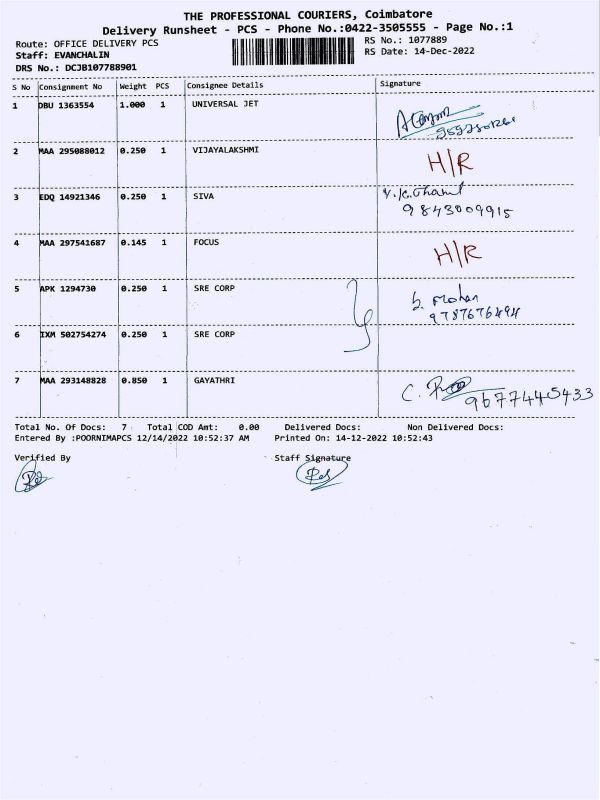 THE PROFESSIONAL COURIERS, Coimbatore
Delivery Runsheet - PCS - Phone No.:0422-3505555 - Page No.:1
Route: OFFICE DELIVERY PCS
Staff: EVANCHALIN
DRS No.: DCJB107788901
RS No.: 1077889
RS Date: 14-Dec-2022
S No Consignment No Weight PCS Consignee Details Signature
1 DBU 1363554 1.000 1 UNIVERSAL JET
2 MAA 295088012 0.250 1 VIJAYALAKSHMI H/R
3 EDQ 14921346 0.250 1 SIVA
9843009915
4 MAA 297541687 0.145 1 FOCUS H/R
5 APK 1294730 0.250 1 SRE CORP
Mohan
9787676494
6 IXM 502754274 0.250 1 SRE CORP
7 MAA 293148828 0.850 1 GAYATHRI C.
9677445433
Total No. Of Docs: 7 Total COD Amt: 0.00 Delivered Docs: Non Delivered Docs:
Entered By :POORNIMAPCS 12/14/2022 10:52:37 AM Printed On: 14-12-2022 10:52:43
Verified By Staff Signature